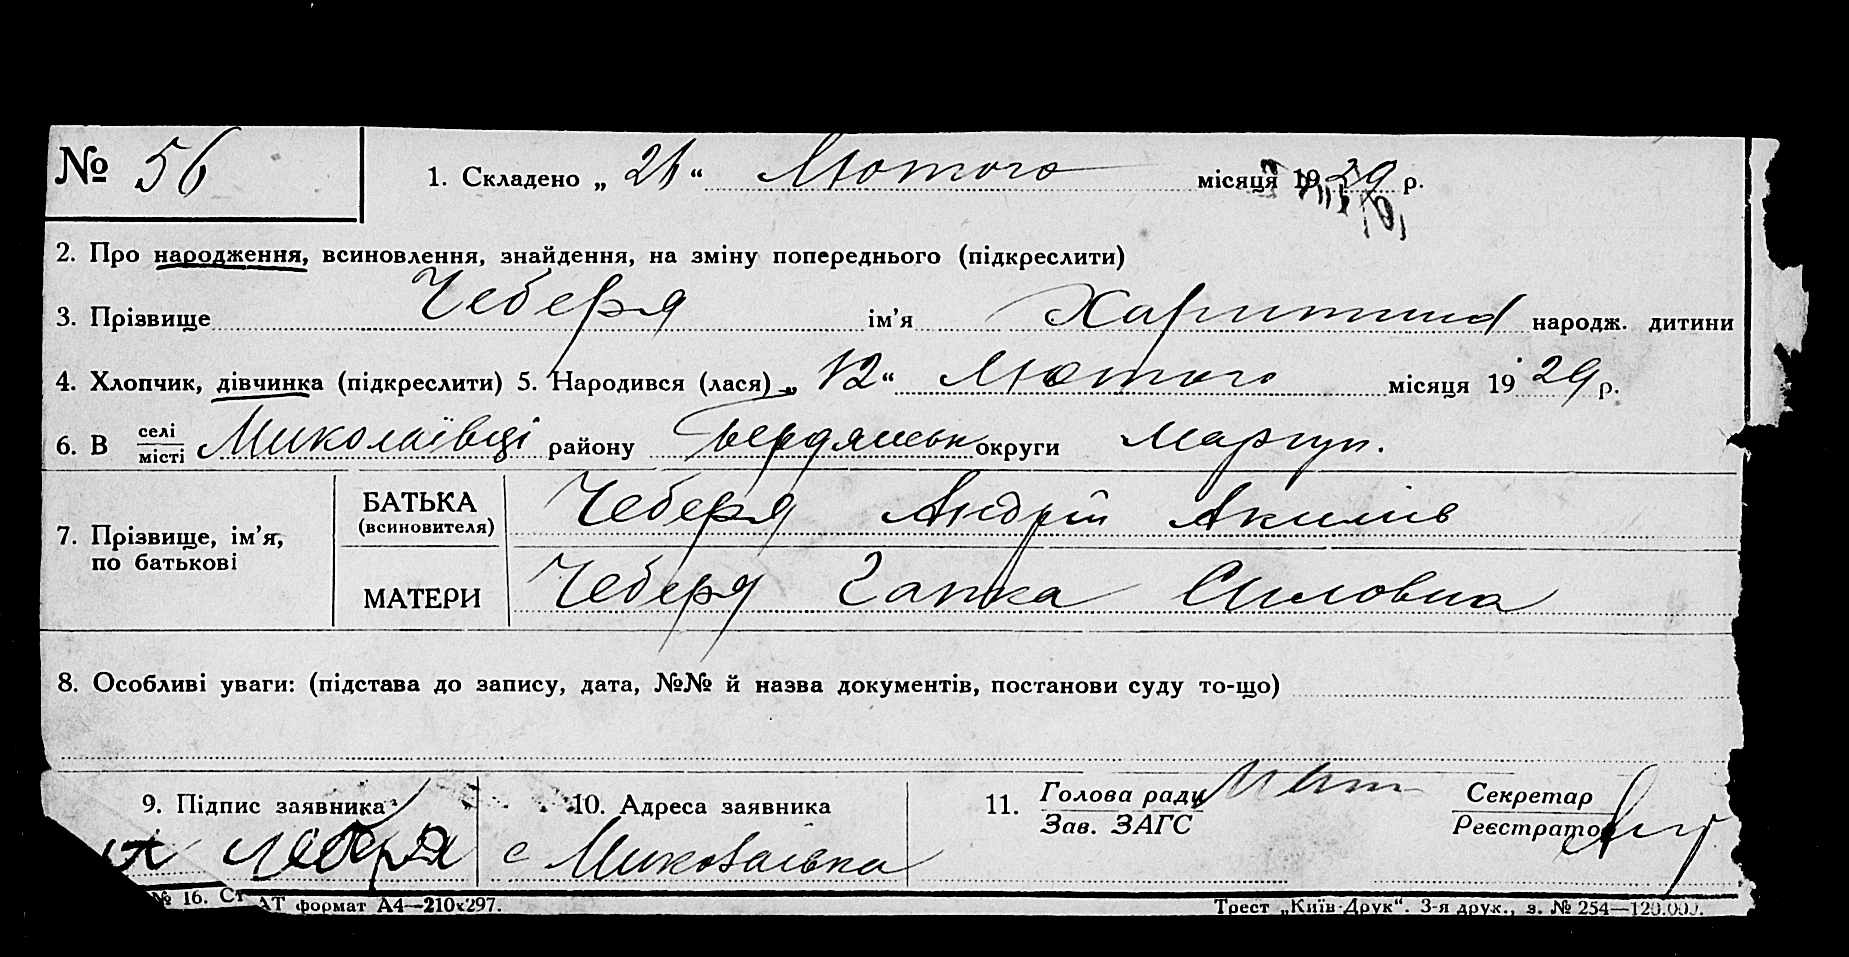 № 56 1. Складено „ 21 “ Лютого місяця 1929 р.
2. Про народження, всиновлення, знайдення, на зміну попереднього (підкреслити)
3. Прізвище Чеберя ім’я Харитина народж. дитини
4. Хлопчик, дівчинка (підкреслити) 5. Народився (лася) „ 12 “ Лютого місяця 1929 р.
6. В селі місті Миколаївці району Бердянськ округи Маріуп.
7. Прізвище, ім’я, по батькові
БАТЬКА (всиновителя) Чеберя Андрій Акимів
МАТЕРИ Чеберя Гапка Силовна
8. Особливі уваги: (підстава до запису, дата, №№ й назва документів, постанови суду то-що)
9. Підпис заявника 10. Адреса заявника 11. Голова ради Секретар
Зав. ЗАГС Реєстратор
А Чебэря с Миколаївка
№ 16. Ст АТ формат А4—210х297. Трест „Київ-Друк“. 3-я друк., з. № 254—120.000.